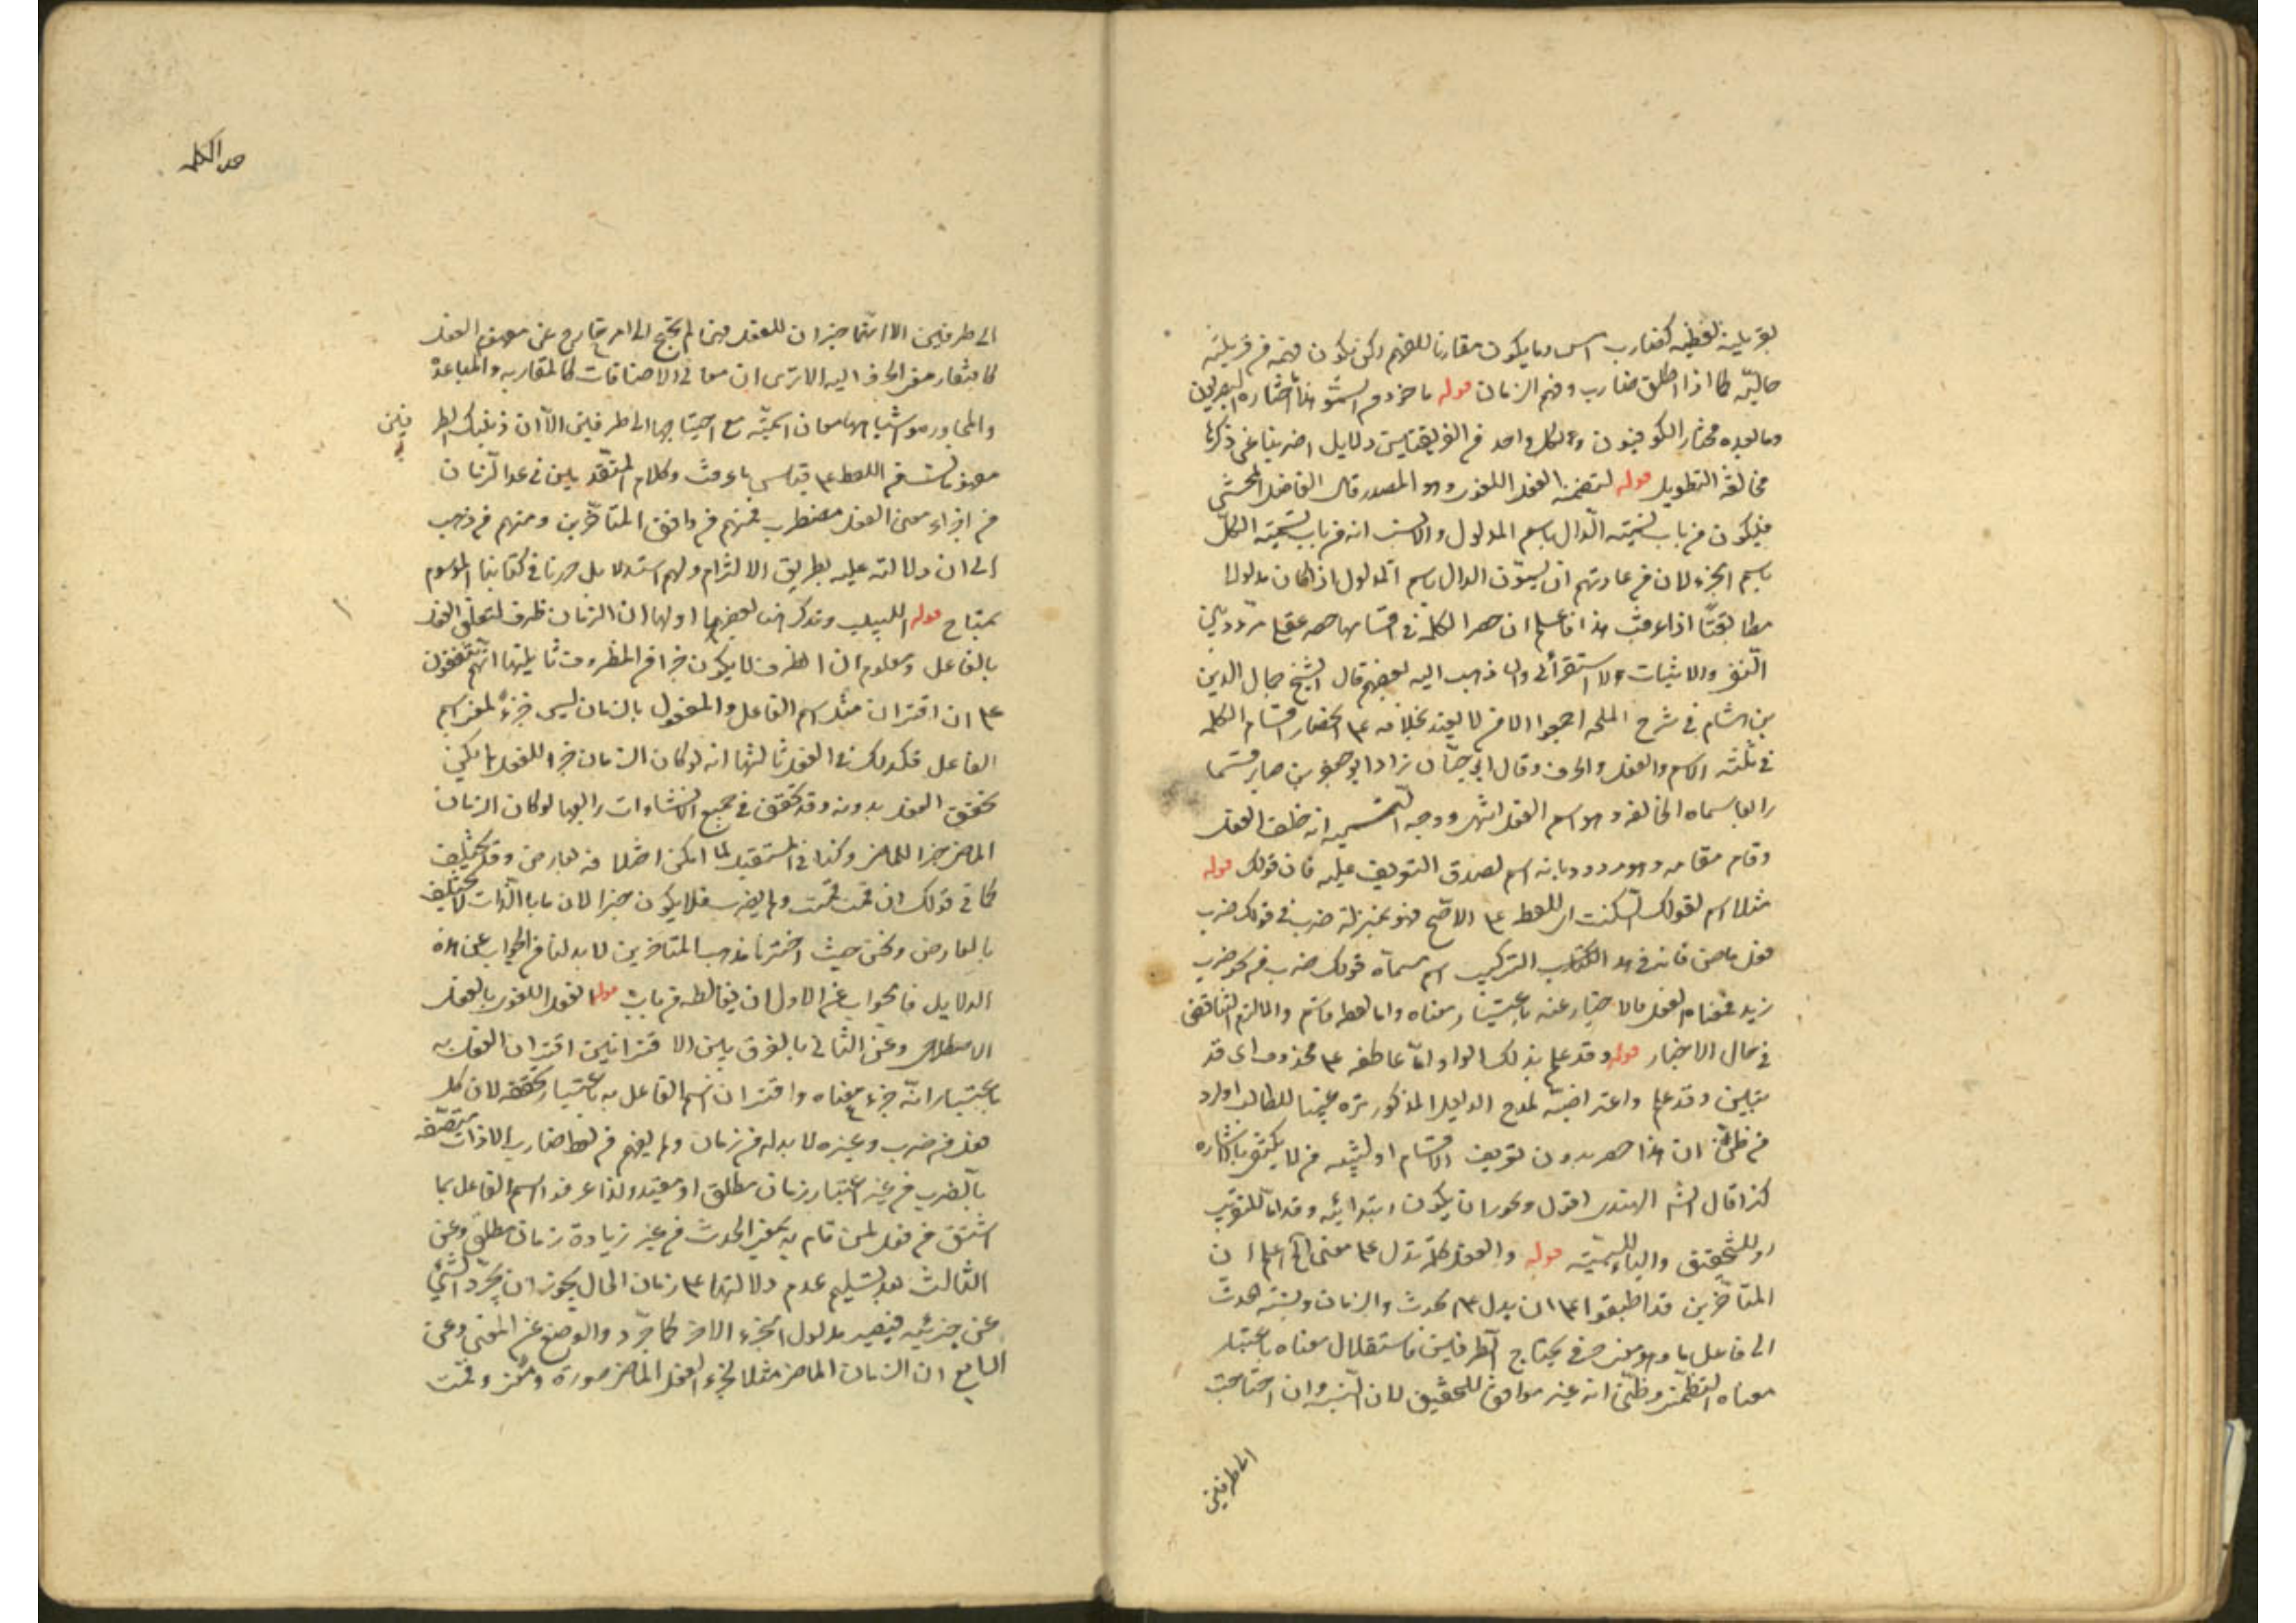 بقرينة لفظية كضارب امس وما يكون مقارنا للفهم ولكن يكون فهمه من قرينة
حالية كما اذا اطلق ضارب وفهم الزمان قوله ماخوذ من السمو هذا ما اختاره البصريين
وما بعده مختار الكوفيون ولكل واحد من الفريقين دلايل اضربنا عن ذكرها
مخافة التطويل قوله لتضمنه الفعل اللغوي وهو المصدر قال الفاضل المحشي
فيكون من باب تسمية الدال باسم المدلول والانسب انه من باب تسمية الكل
باسم الجزء لان من عادتهم ان يسمون الدال باسم المدلول اذا كان مدلولا
مطابقيا اذا عرفت هذا فاعلم ان حصر الكلمة في اقسامها حصر عقلي مردد بين
النفي والاثبات والاستقرائي واما ذهب اليه بعضهم قال الشيخ جمال الدين
بن هشام في شرح اللمحة اجمعوا الا من لا يعتد بخلافه على انحصار اقسام الكلمة
في ثلثة الاسم والفعل والحرف وقال ابو حيان زاد ابو جعفر بن صابر قسما
رابعا سماه الخالفة وهو اسم الفعل اشهر ووجه التسمية انه خلف الفعل
وقام مقامه وهو مردود بانه اسم لصدق التعريف عليه فان قولك قوله
مثلا اسم لقولك اسكت او للفظ على الاصح فهو بمنزلة ضرب في قولك ضرب
فعل ماض فانه في هذا التركيب اسم مسماه قولك ضرب من نحو ضرب
زيد فمعناه لفعل فالاخبار عنه باعتبار معناه واما لفظه فاسم والا لزم التناقض
في حال الاخبار قوله وقد علم بذلك الواو اما عاطفة على محذوف اى قد
تبين وقد علم واعتراضية لمدح الدليل المذكور ترغيبا للطالب اورد
من ظن ان هذا حصر بدون تعريف الاقسام او تنبيه من لا يكتفي بالاشارة
كذا قال الهندي اقول ويجوز ان يكون ابتدائية وقد اما للتقريب
او للتحقيق والباء للسببية قوله والفعل كلمة تدل على معنى الخ اعلم ان
المتاخرين قد اطبقوا على ان يدل على حدث والزمان ونسبة حدث
الى فاعل ما وهو معنى حرفي يحتاج الطرفين فاستقلال معناه باعتبار
معناه التضمني وظني انه غير موافق للتحقيق لان النسبة وان احتاجت
الى طرفين
حد الكلمة
الى طرفين الا انها جزان للفعل فح لم يحتج الى امر خارج عن مفهوم الفعل
كافتقار معنى الحرف اليه الا ترى ان معاني الاضافات كالمقاربة والمباعدة
والمجاورة واشباهها معان اسمية مع احتياجها الى طرفين الا ان ذينك الطرفين
مفهومان من اللفظ على قياس ما عرفت وكلام المتقدمين في عد الزمان
من اجزاء معنى الفعل مضطرب فمنهم من وافق المتاخرين ومنهم من ذهب
الى ان دلالته عليه بطريق الالتزام ولهم استدلال حررنا في كتابنا الموسوم
بمتاح قوله اللبيب ونذكر هنا بعضها اولها ان الزمان ظرف لتعلق الفعل
بالفاعل ومعلوم ان الظرف لا يكون جزا من المظروف ثانيها انهم متفقون
على ان اقتران مثل اسم الفاعل والمفعول بالزمان ليس جزء لمعنى اسم
الفاعل فكذلك في الفعل ثالثها انه لو كان الزمان جزا للفعل لم يمكن
تحقق الفعل بدونه وقد تحقق في جميع الانشاءات رابعها لو كان الزمان
الماضي جزا للماضي وكذا في المستقبل لما امكن اختلافه بعارض وقد يختلف
كما في قولك ان قمت قمت ولم يضرب فلا يكون جزا لان ما بالذات لا يختلف
بالعارض ونحن حيث اخترنا مذهب المتاخرين لا بد لنا من الجواب عن هذه
الدلايل فالجواب عن الاول ان مغالطة من باب قوله الفعل اللغوي بالفعل
الاصطلاحي وعن الثاني بالفرق بين الاقترانين اقتران الفعل به
باعتبار انه جزء معناه واقتران اسم الفاعل به باعتبار تحققه لان كل
فعل من ضرب وغيره لا بد له من زمان ولم يفهم من لفظ ضارب الا ذات متصفة
بالضرب من غير اعتبار زمان مطلق او مقيد ولذا عرفوا اسم الفاعل بما
اشتق من فعل لمن قام به بمعنى الحدث من غير زيادة زمان مطلق وعن
الثالث بعد تسليم عدم دلالتها على زمان الحال يجوز ان يجرد الشيئ
عن جزئيه فيصير مدلول الجزء الاخر كما جرد والوضع عن المعنى وعن
الرابع ان الزمان الماضي مثلا لجزء الفعل الماضي صورة ومعنى وقمت